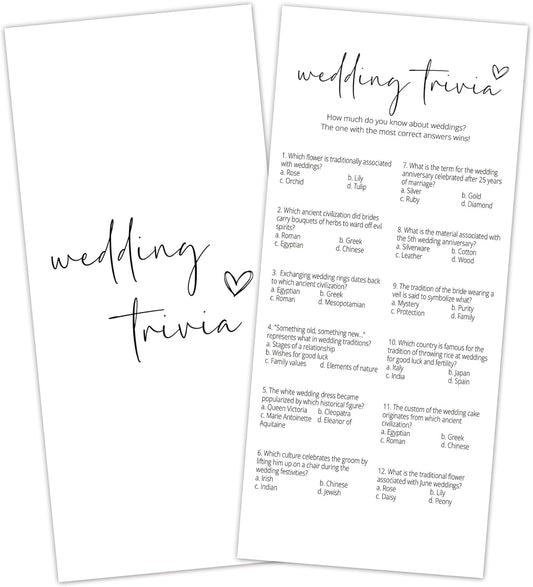 wedding
trivia
wedding trivia
How much do you know about weddings?
The one with the most correct answers wins!
1. Which flower is traditionally associated
with weddings?
a. Rose b. Lily
c. Orchid d. Tulip
2. Which ancient civilization did brides
carry bouquets of herbs to ward off evil
spirits?
a. Roman b. Greek
c. Egyptian d. Chinese
3. Exchanging wedding rings dates back
to which ancient civilization?
a. Egyptian b. Greek
c. Roman d. Mesopotamian
4. "Something old, something new..."
represents what in wedding traditions?
a. Stages of a relationship
b. Wishes for good luck
c. Family values d. Elements of nature
5. The white wedding dress became
popularized by which historical figure?
a. Queen Victoria b. Cleopatra
c. Marie Antoinette d. Eleanor of
Aquitaine
6. Which culture celebrates the groom by
lifting him up on a chair during the
wedding festivities?
a. Irish b. Chinese
c. Indian d. Jewish
7. What is the term for the wedding
anniversary celebrated after 25 years
of marriage?
a. Silver b. Gold
c. Ruby d. Diamond
8. What is the material associated with
the 5th wedding anniversary?
a. Silverware b. Cotton
c. Leather d. Wood
9. The tradition of the bride wearing a
veil is said to symbolize what?
a. Mystery b. Purity
c. Protection d. Family
10. Which country is famous for the
tradition of throwing rice at weddings
for good luck and fertility?
a. Italy b. Japan
c. India d. Spain
11. The custom of the wedding cake
originates from which ancient
civilization?
a. Egyptian b. Greek
c. Roman d. Chinese
12. What is the traditional flower
associated with June weddings?
a. Rose b. Lily
c. Daisy d. Peony